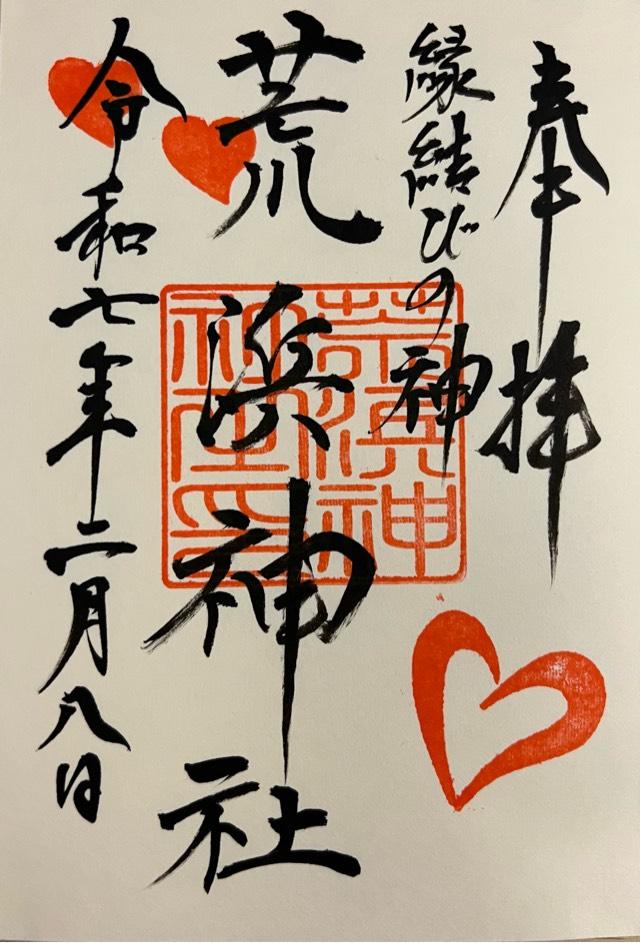 奉拝
縁結びの神
荒浜神社
荒濱神社之印
令和七年二月八日